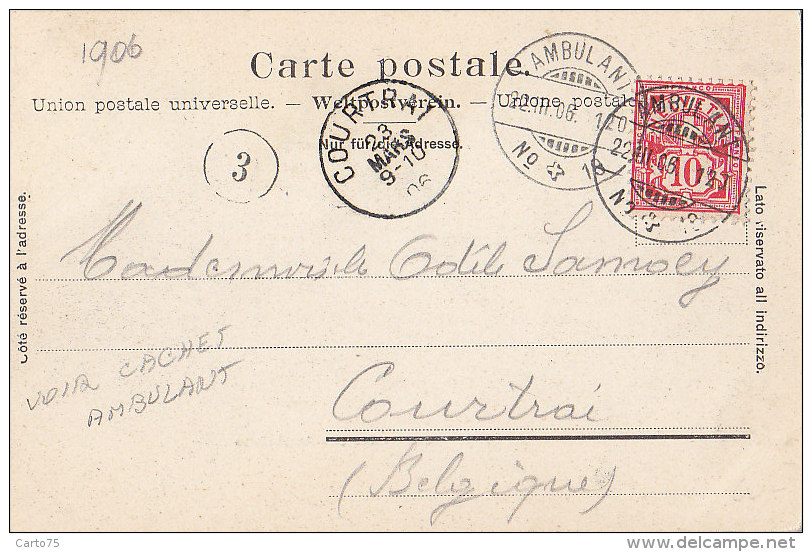 1906
Carte postale.
Union postale universelle. — Weltpostverein. — Unione postale
Nur für die Adresse.
COURTRAI
23
MARS
9-10
06
AMBULANT
22.III.06. 120
No 18
AMBULANT
22.III.06. 12
No 18
10
3
Côté réservé à l'adresse.
Lato riservato all indirizzo.
Mademoiselle Odile Samoey
VOIR CACHET
AMBULANT
Courtrai
(Belgique)
Carto75
www.delcampe.net